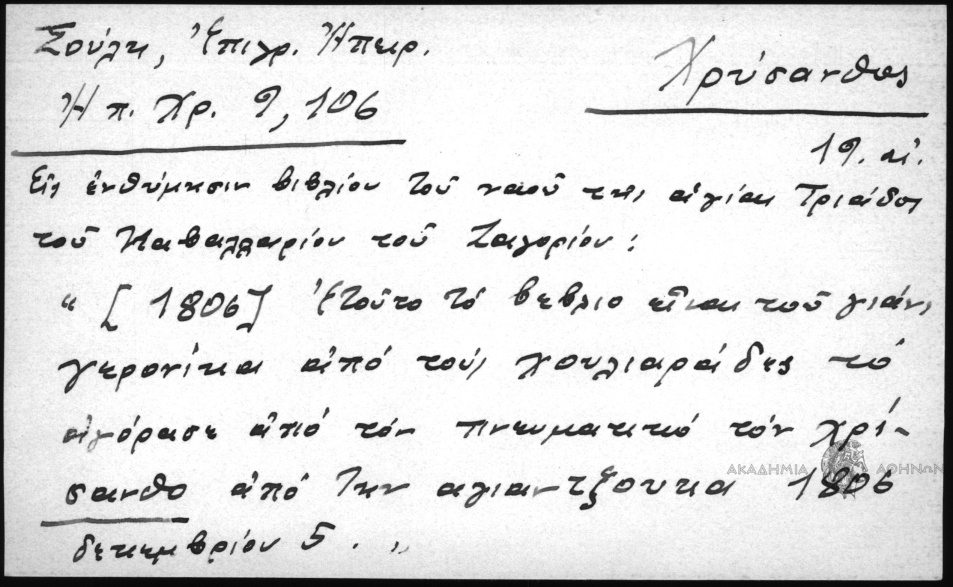 Σούλη, Ἐπιγρ. Ἠπειρ.
Ἠπ. Χρ. 9, 106
Χρύσανθος
19. αἰ.
Εἰς ἐνθύμησιν βιβλίου τοῦ ναοῦ τῆς ἁγίας Τριάδος
τοῦ Καβαλλαρίου τοῦ Ζαγορίου:
"[1806] Ἐτοῦτο τό βεβλιο εἶναι τοῦ γιάνι
γερονίκα ἀπό τούς χουλιαράδες τό
ἀγόρασε ἀπό τόν πνευματικό τόν χρί-
σανθο ἀπό την αγιαντζουκα 1806
δεκεμβρίου 5."
ΑΚΑΔΗΜΙΑ ΑΘΗΝΩΝ